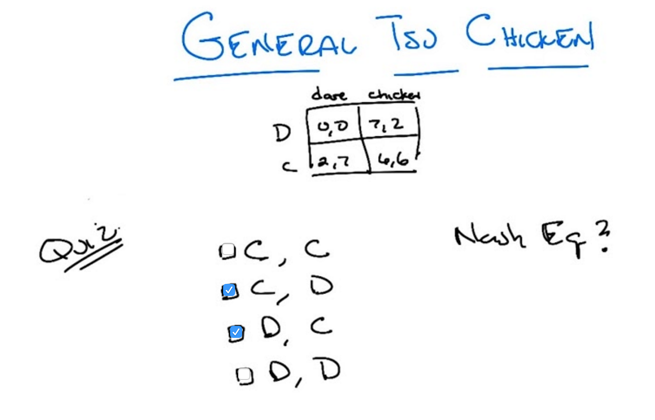 GENERAL TSO CHICKEN
dare chicken
D 0,0 7,2
C 2,7 6,6
Quiz
Nash Eq?
C, C
C, D
D, C
D, D